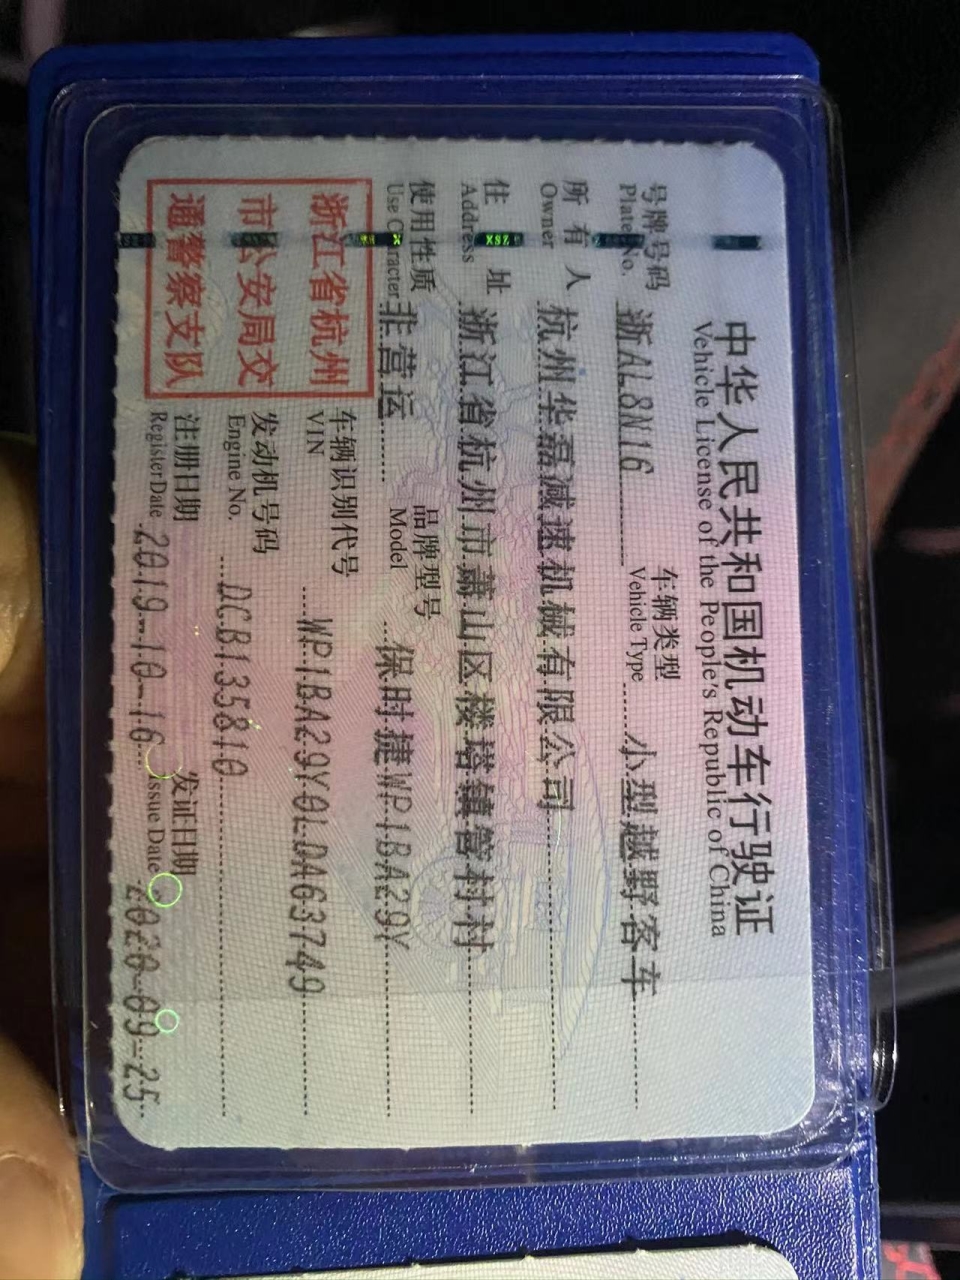 中华人民共和国机动车行驶证
Vehicle License of the People's Republic of China
号牌号码 浙AL8N16 车辆类型 小型越野客车
Plate No. Vehicle Type
所有人 杭州华磊减速机械有限公司
Owner
住址 浙江省杭州市萧山区楼塔镇管村村
Address
使用性质 非营运 品牌型号 保时捷WP1BA29Y
Use Character Model
浙江省杭州
市公安局交
通警察支队
车辆识别代号 WP1BA29Y0LDA63749
VIN
发动机号码 DCB135810
Engine No.
注册日期 2019-10-16 发证日期 2020-09-25
Register Date Issue Date